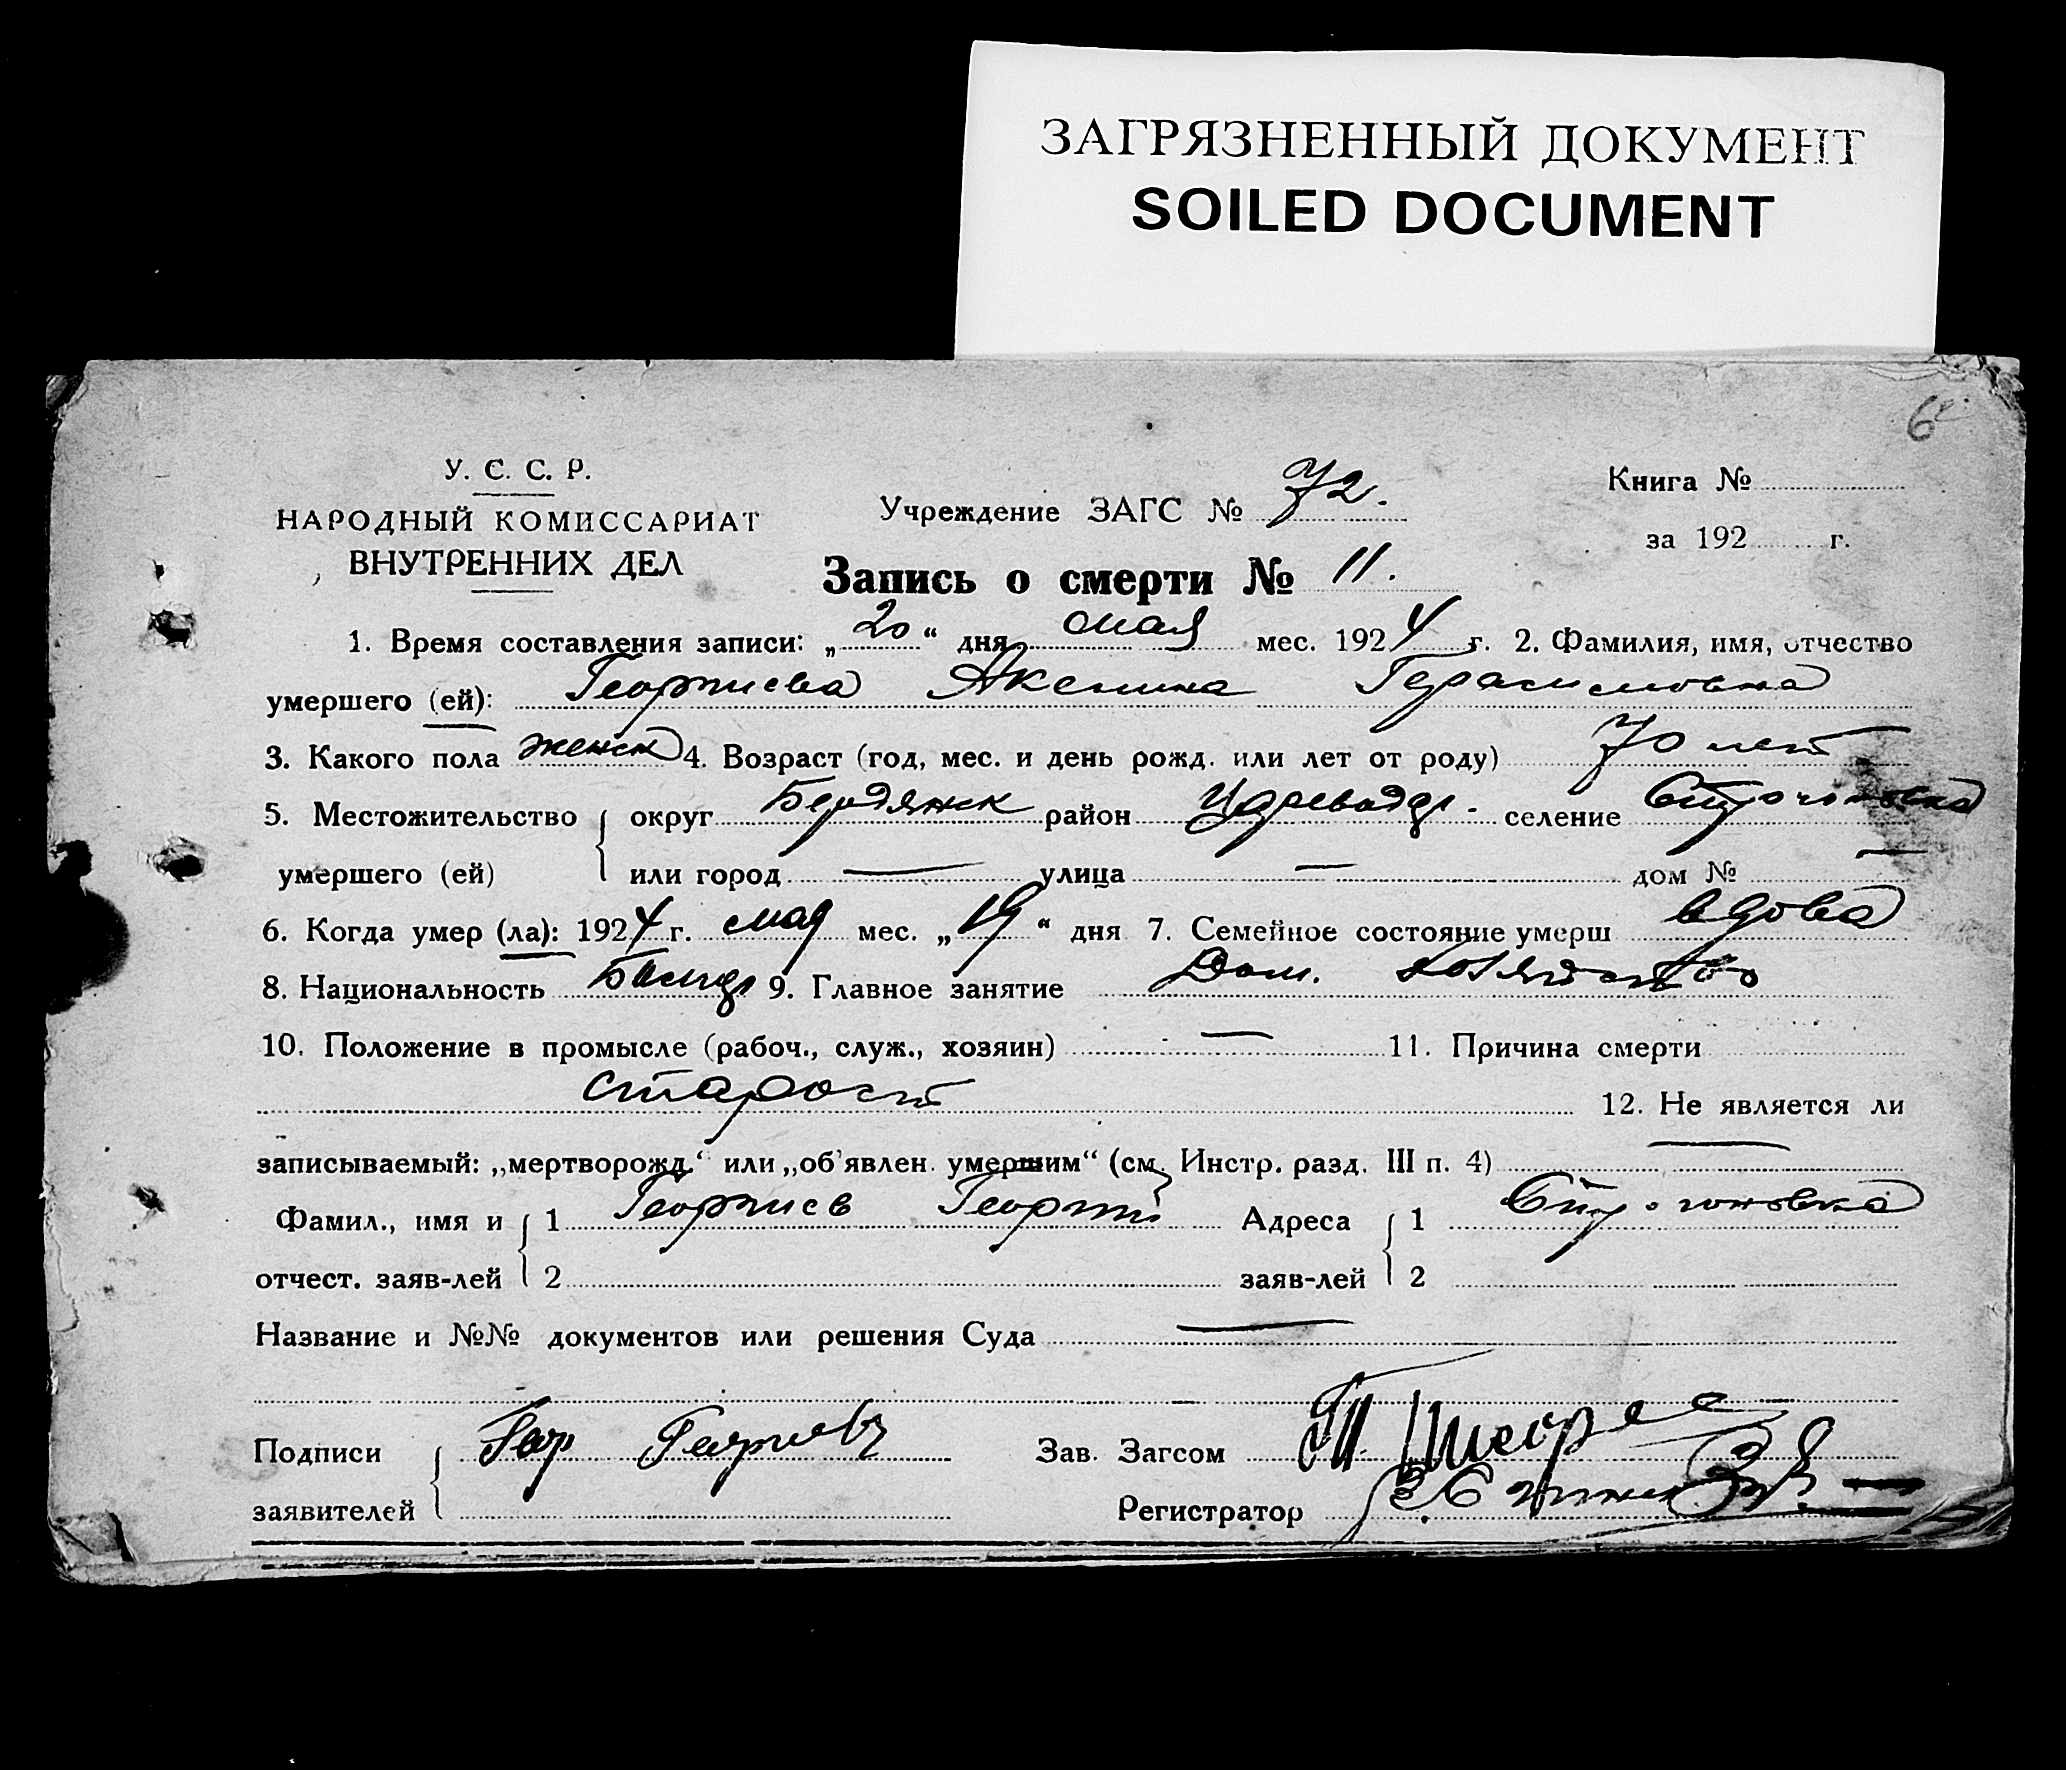 ЗАГРЯЗНЕННЫЙ ДОКУМЕНТ
SOILED DOCUMENT
У. С. С. Р.
НАРОДНЫЙ КОМИССАРИАТ
ВНУТРЕННИХ ДЕЛ
Учреждение ЗАГС № 72.
Книга №
за 192 г.
Запись о смерти № 11.
1. Время составления записи: „20“ дня мая мес. 1924 г. 2. Фамилия, имя, отчество
умершего (ей): Георгиева Аксениа Герасимовна
3. Какого пола женск 4. Возраст (год, мес. и день рожд. или лет от роду) 70 лет
5. Местожительство округ Бердянск район селение Строгоновка
умершего (ей) или город — улица — дом № —
6. Когда умер (ла): 1924 г. мая мес. „19“ дня 7. Семейное состояние умерш вдова
8. Национальность 9. Главное занятие Дом. хозяйство
10. Положение в промысле (рабоч., служ., хозяин) — 11. Причина смерти
старост 12. Не является ли
записываемый: „мертворожд.“ или „об'явлен. умершим“ (см. Инстр. разд. III п. 4) —
Фамил., имя и 1 Георгиев Георгий Адреса 1 Строгоновка
отчест. заяв-лей 2 заяв-лей 2
Название и №№ документов или решения Суда —
Подписи Геор Георгиевъ Зав. Загсом
заявителей Регистратор